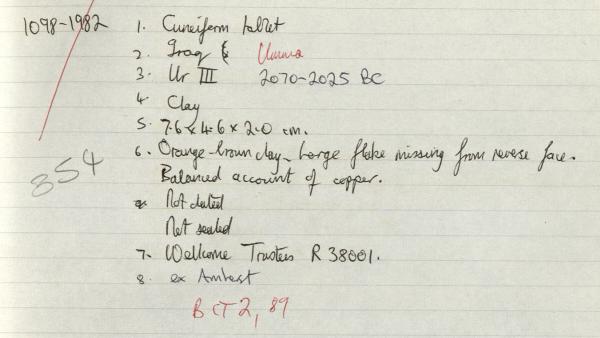 1098-1982
1. Cuneiform tablet
2. Iraq Umma
3. Ur III 2070-2025 BC
4. Clay
854
5. 7.6 x 4.6 x 2.0 cm.
6. Orange-brown clay. Large flake missing from reverse face.
Balanced account of copper.
Not dated
Not sealed
7. Wellcome Trustees R 38001.
8. ex Amherst
BCT 2, 89